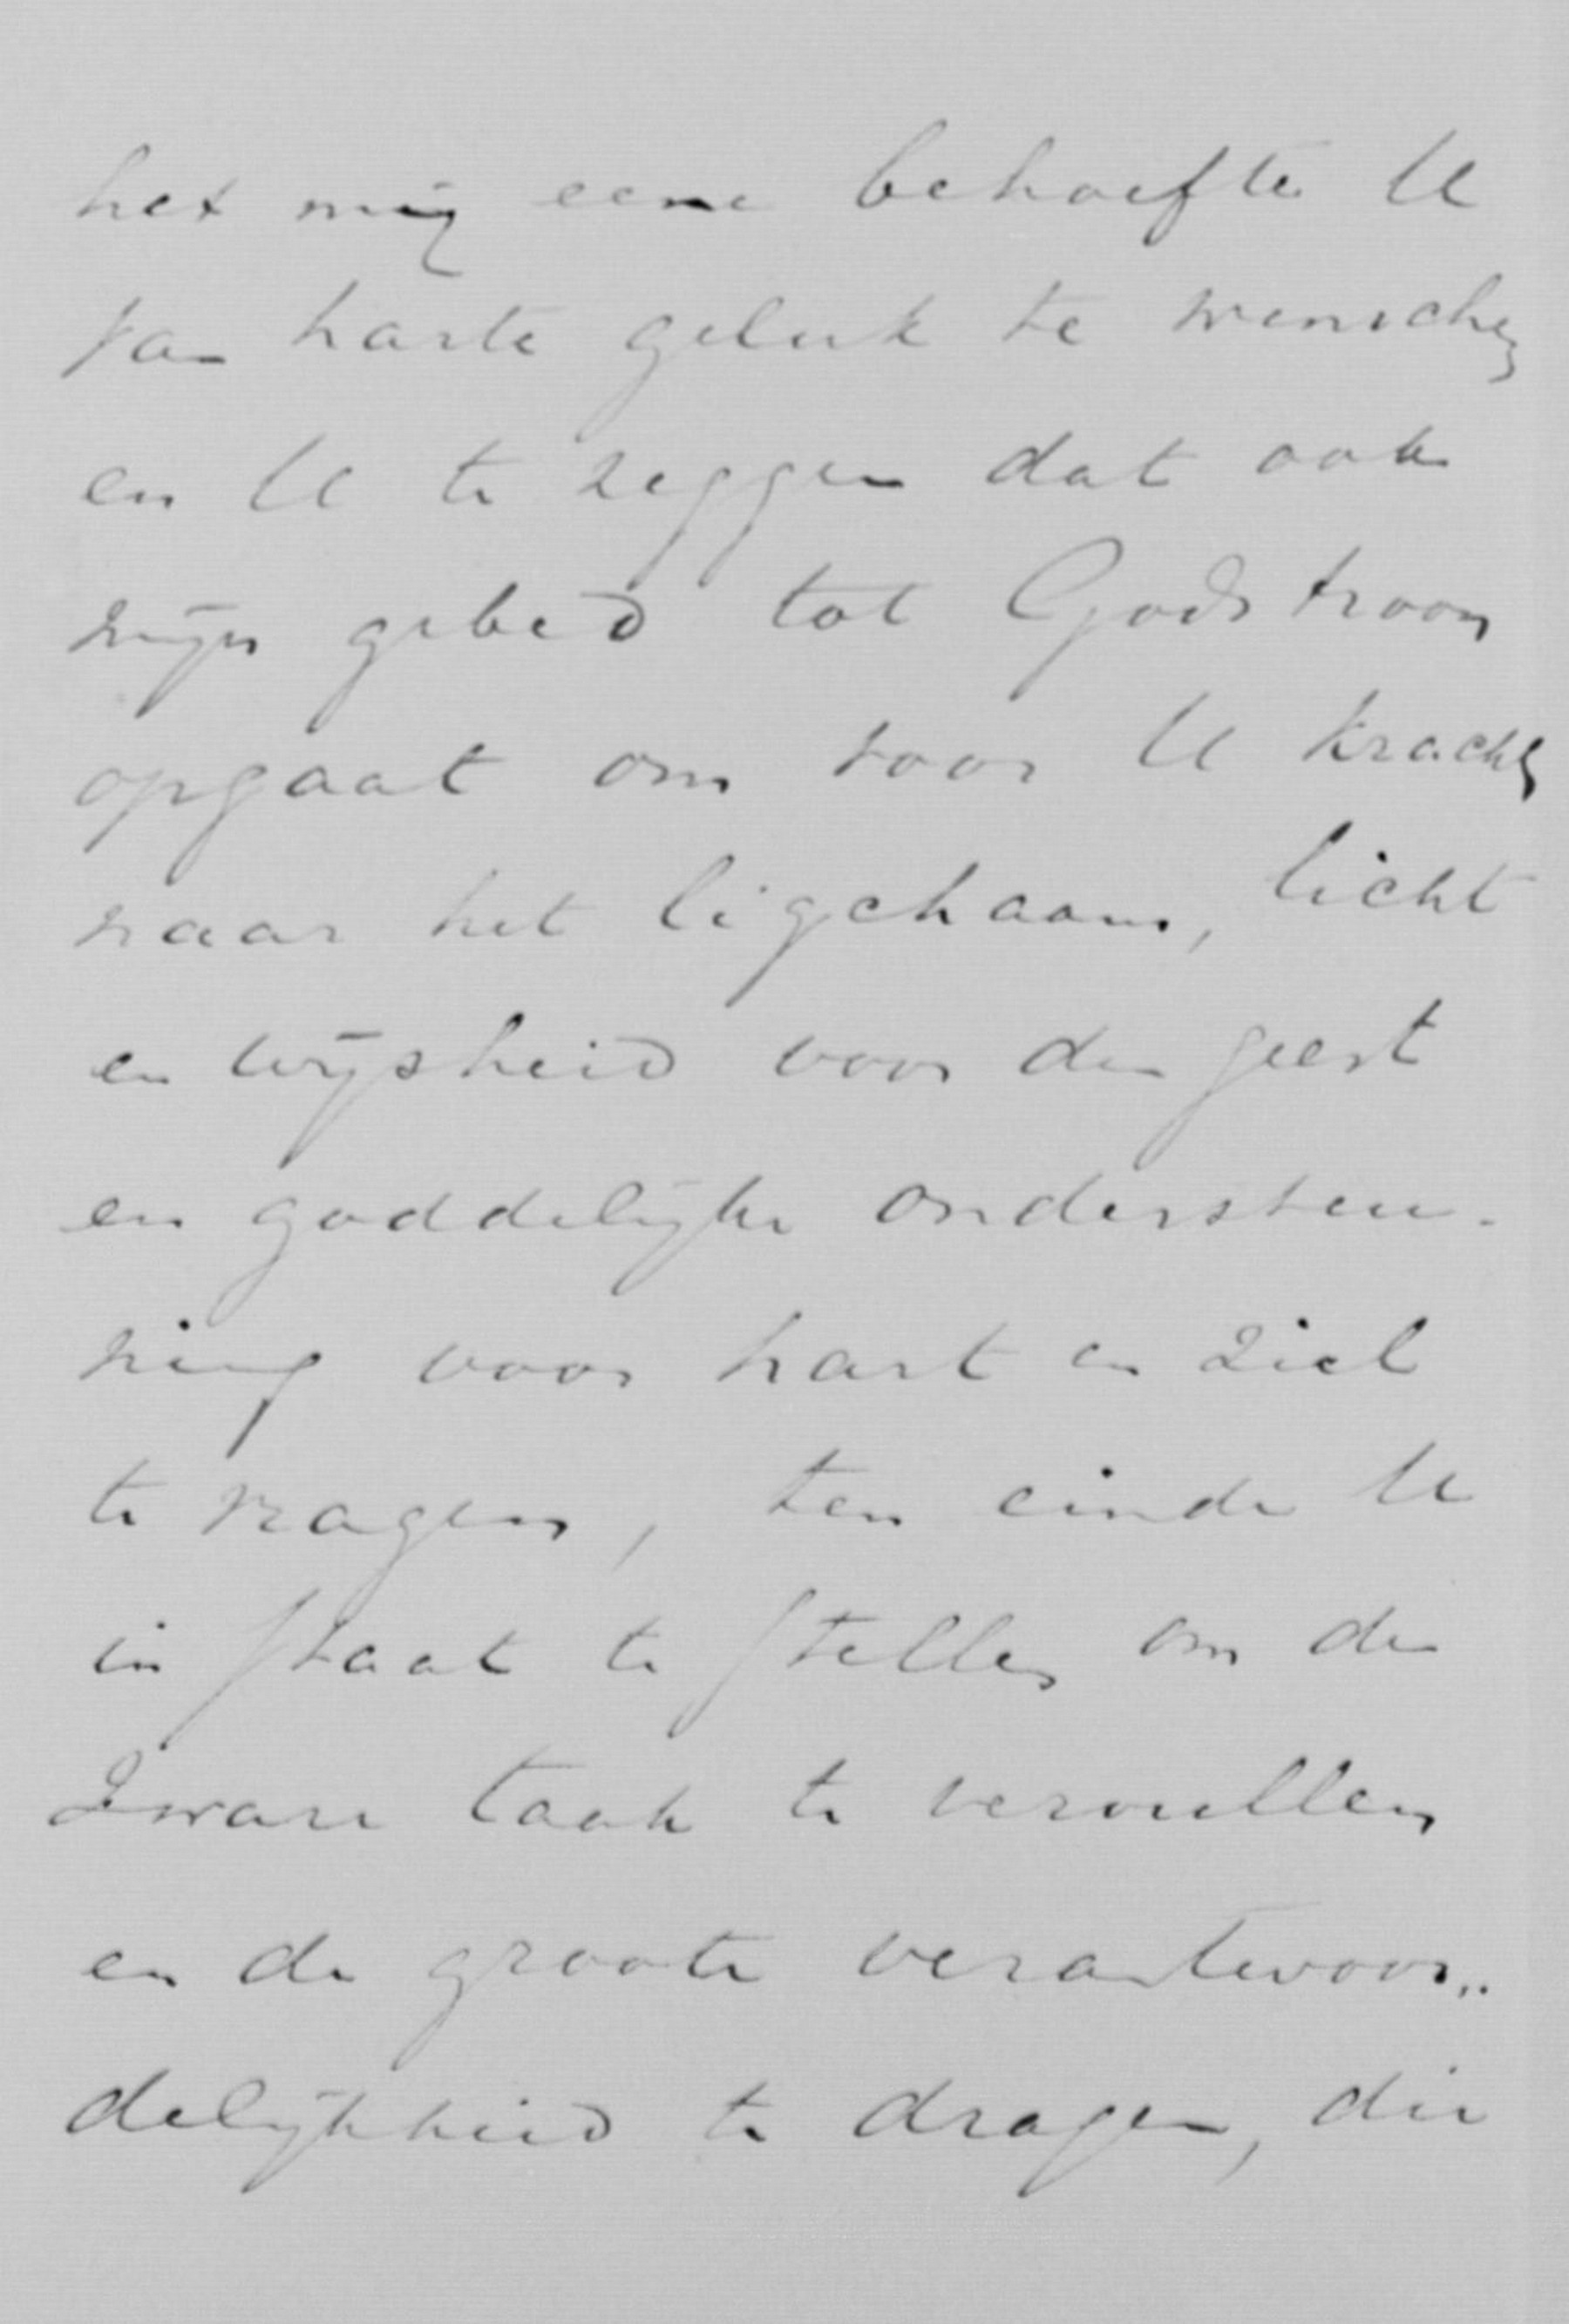 het mij eene behoefte U
van harte geluk te wenschen
en U te zeggen dat ook
mijn gebed tot Gods troon
opgaat om voor U kracht
naar het ligchaam, licht
en wijsheid voor den geest
en goddelijke ondersteu-
ning voor hart en ziel
te vragen, ten einde U
in staat te stellen om de
zware taak te vervullen
en de groote verantwoor„
delijkheid te dragen, die